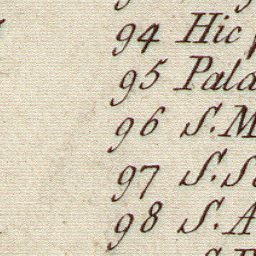 94 Hic
95 Pala
96 S. M
97 S. Sa
98 S. A